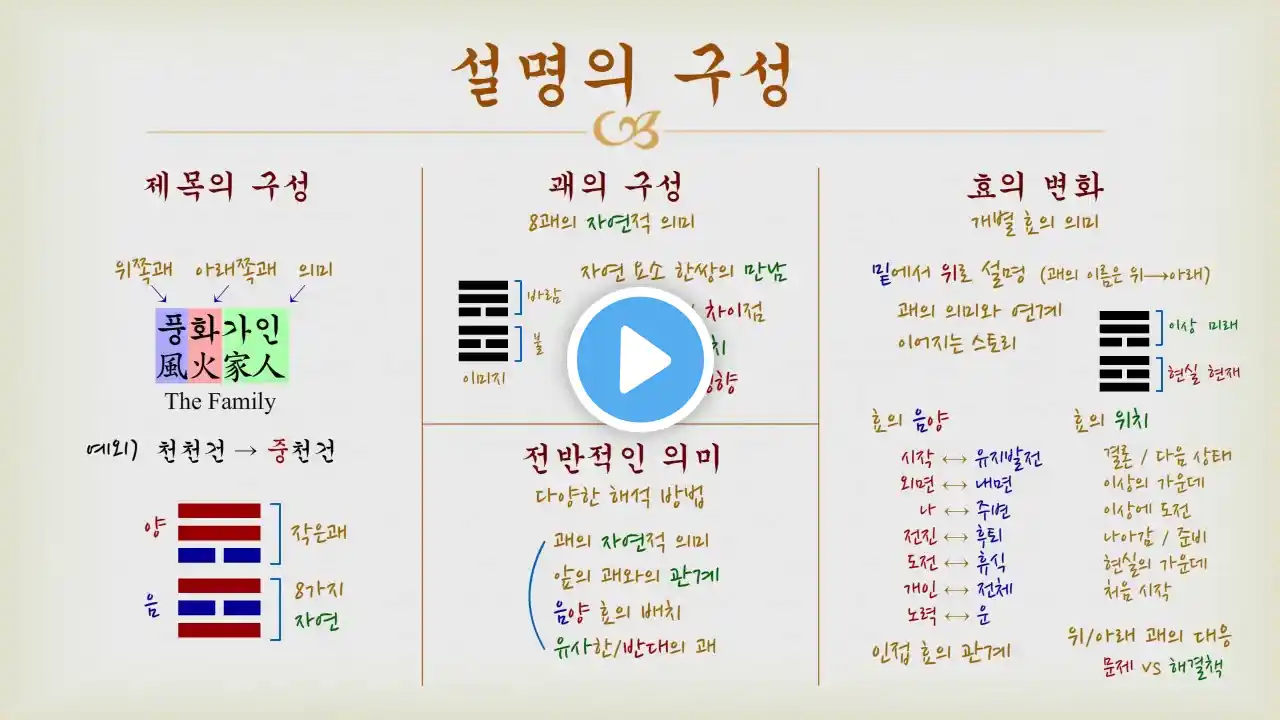 설명의 구성
제목의 구성
위쪽괘 아래쪽괘 의미
풍화가인
風火家人
The Family
예외) 천천건 → 중천건
양
작은괘
음
8가지
자연
괘의 구성
8괘의 자연적 의미
자연 요소 한쌍의 만남
바람
불
이미지
차이점
전반적인 의미
다양한 해석 방법
괘의 자연적 의미
앞의 괘와의 관계
음양 효의 배치
유사한/반대의 괘
효의 변화
개별 효의 의미
밑에서 위로 설명 (괘의 이름은 위→아래)
괘의 의미와 연계
이어지는 스토리
이상 미래
현실 현재
효의 음양
시작 ↔ 유지발전
외면 ↔ 내면
나 ↔ 주변
전진 ↔ 후퇴
도전 ↔ 휴식
개인 ↔ 전체
노력 ↔ 운
인접 효의 관계
효의 위치
결론 / 다음 상태
이상의 가운데
이상에 도전
나아감 / 준비
현실의 가운데
처음 시작
위/아래 괘의 대응
문제 vs 해결책